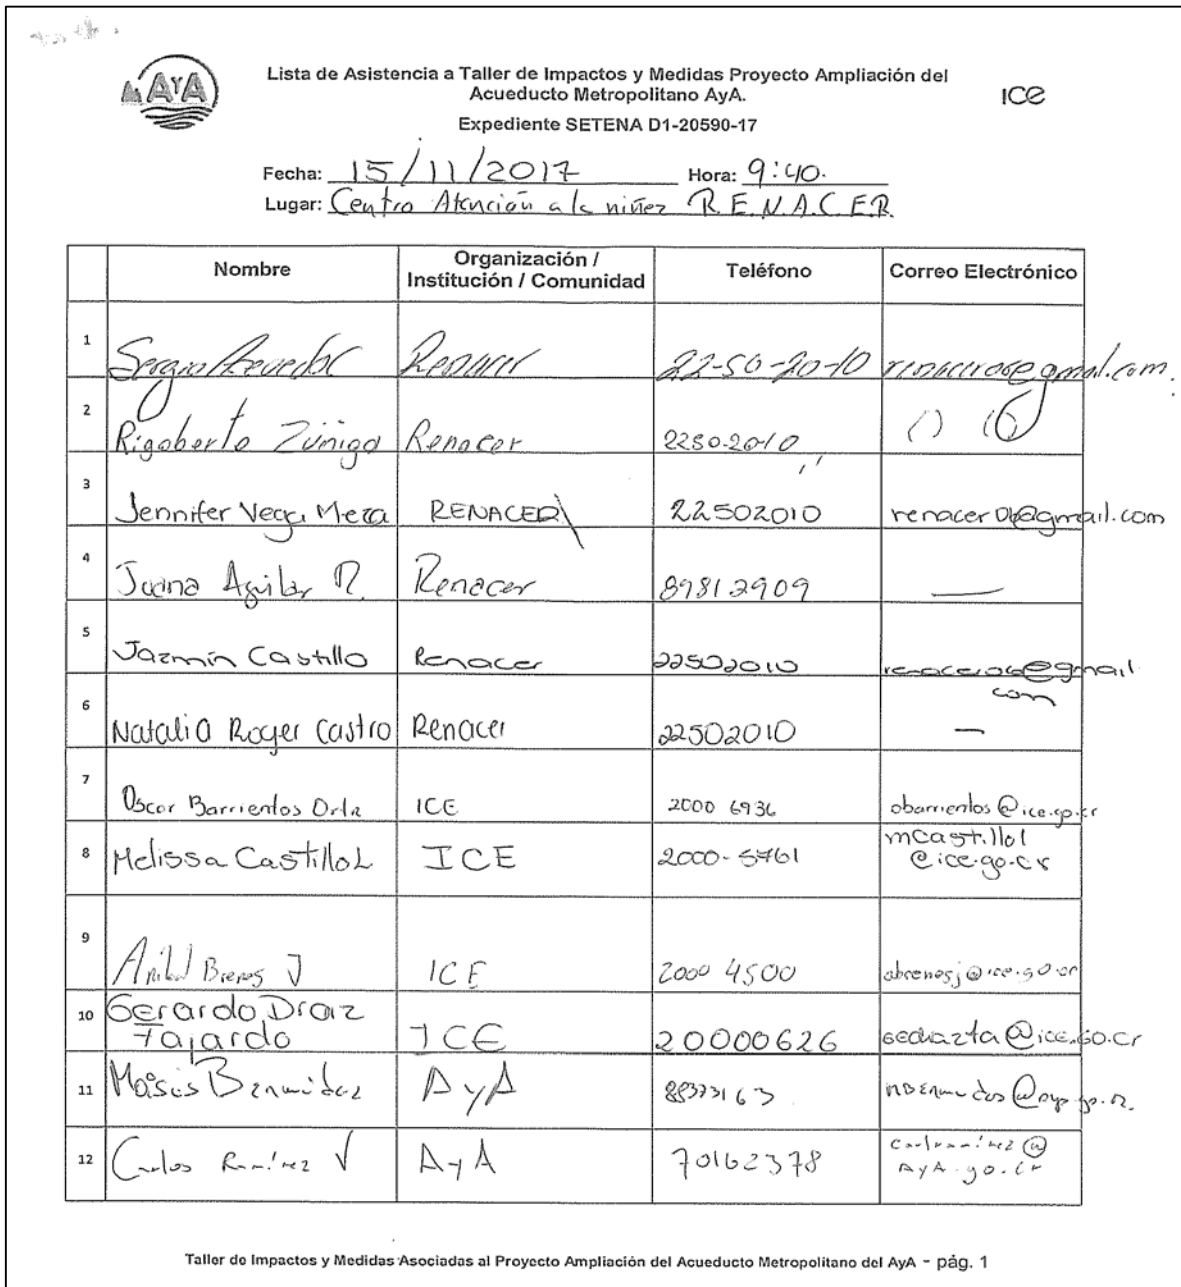 AYA
Lista de Asistencia a Taller de Impactos y Medidas Proyecto Ampliación del
Acueducto Metropolitano AyA.
ice
Expediente SETENA D1-20590-17
Fecha: 15/11/2017 Hora: 9:40.
Lugar: Centro Atención a la niñez R.E.N.A.C.E.R.
Nombre Organización / Institución / Comunidad Teléfono Correo Electrónico
1 Sergio Renacer 22-50-20-10 @gmail.com.
2 Rigoberto Zúñiga Renacer 2250-2010
3 Jennifer Vega Meza RENACER 22502010 @gmail.com
4 Juana Aguilar R. Renacer 89812909 —
5 Jazmín Castillo Renacer 22502010 @gmail
com
6 Natalia Roger Castro Renacer 22502010 —
7 Oscar Barrientos Ortiz ICE 2000 6936 obarrientos@ice.go.cr
8 Melissa Castillo L ICE 2000-5761 mcastillol
@ice.go.cr
9 Brenes J ICE 2000 4500 abrenesj@ice.go.cr
10 Gerardo Díaz
Fajardo ICE 20000626 @ice.go.cr
11 Moisés Bermúdez AyA 88373163
12 Carlos Ramírez V AyA 70162378 @
AyA.go.cr
Taller de Impactos y Medidas Asociadas al Proyecto Ampliación del Acueducto Metropolitano del AyA - pág. 1